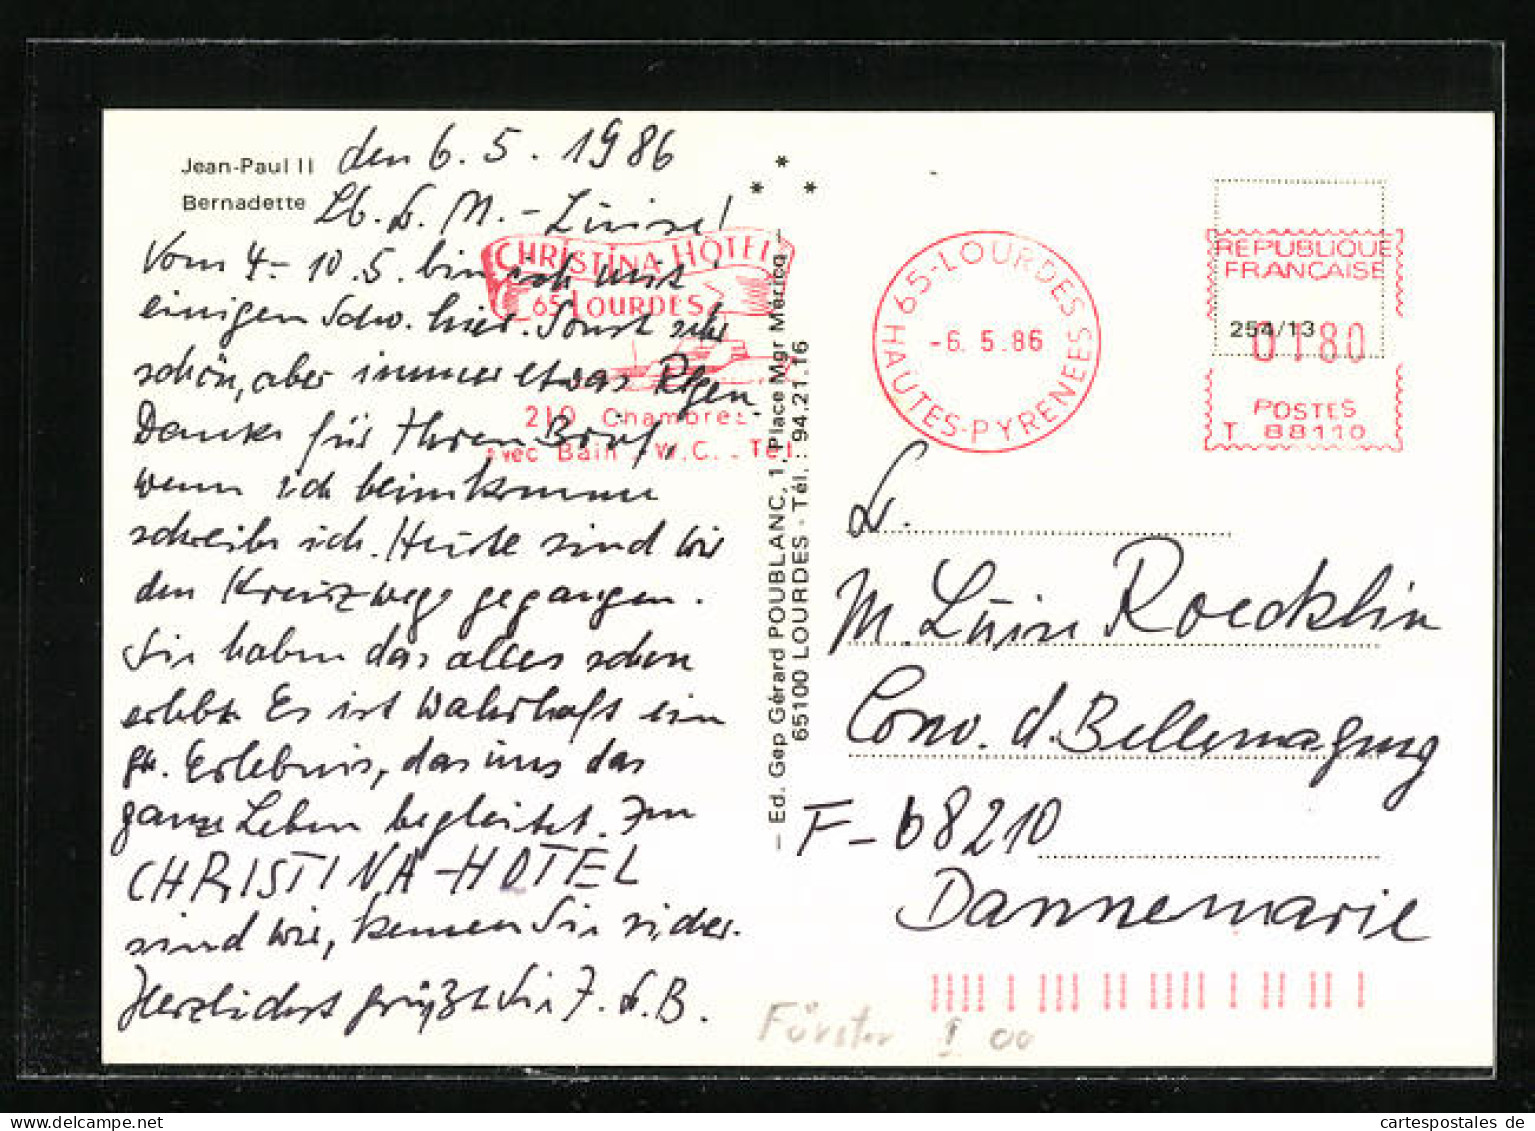 Jean-Paul II
Bernadette
den 6. 5. 1986
Lb. S. M. - Luise!
Vom 4.- 10.5. bin ich mit
einigen Schw. hier. Sonst sehr
schön, aber immer etwas Regen.
Danke für Ihren Brief,
wenn ich heimkomme
schreibe ich. Heute sind wir
den Kreuzweg gegangen.
Sie haben das alles schon
erlebt. Es ist wahrhaft ein
gr. Erlebnis, das uns das
ganze Leben begleitet. Im
CHRISTINA-HOTEL
sind wir, kennen Sie sicher.
Herzlichst grüßt Sie J. S. B.
CHRISTINA HOTEL
65 LOURDES
210 Chambres
avec Bain - W.C. - Tél.
— Ed. Gep Gérard POUBLANC, 1, Place Mgr Méricq —
65100 LOURDES - Tél. : 94.21.16
65-LOURDES
HAUTES-PYRENEES
-6. 5.86
REPUBLIQUE
FRANCAISE
254/13
0180
POSTES
T 88110
S.
M. Luise Roecklin
Conv. d. Bellemagny
F-68210
Dannemarie
Förster I 00
cartespostales de